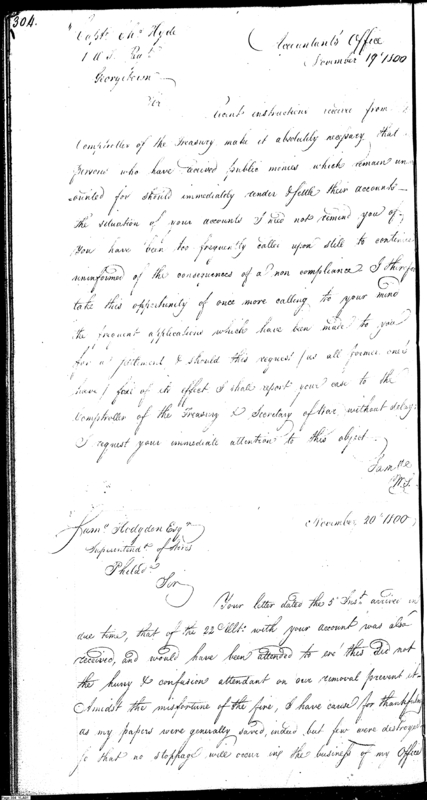 304.
Capt. Cha.s Hyde
1 U S Regt
Georgetown
Accountant's Office
November 19th 1800
Sir
Recent instructions receive from
Comptroller of the Treasury make it absolutely necessary that
persons who have received public monies which remain un
counted for should immediately render & settle their accounts –
the situation of your accounts I need not remind you of,
You have been too frequently called upon still to continue
uninformed of the consequences of a non compliance I therefore
take this opportunity of once more calling to your mind
the frequent applications which have been made to you
for a settlement & should this request (as all former ones
have) fail of its effect I shall report your case to the
Comptroller of the Treasury & Secretary of War, without delay
I request your immediate attention to this object.
I am &c
W. S.
November 20th 1800
Saml. Hodgdon Esqr
Superintendt of Stores
Philada
Sir
Your letter dated the 5th Inst. arrived in
due time, that of the 22 Ulto. with your account was also
received, and would have been attended to ere this did not
the hurry & confusion attendant on our removal prevent it –
Amidst the misfortune of the fire, I have cause for thankfulness
as my papers were generally saved, indeed but few were destroyed
so that no stoppage will occur in the business of my Office